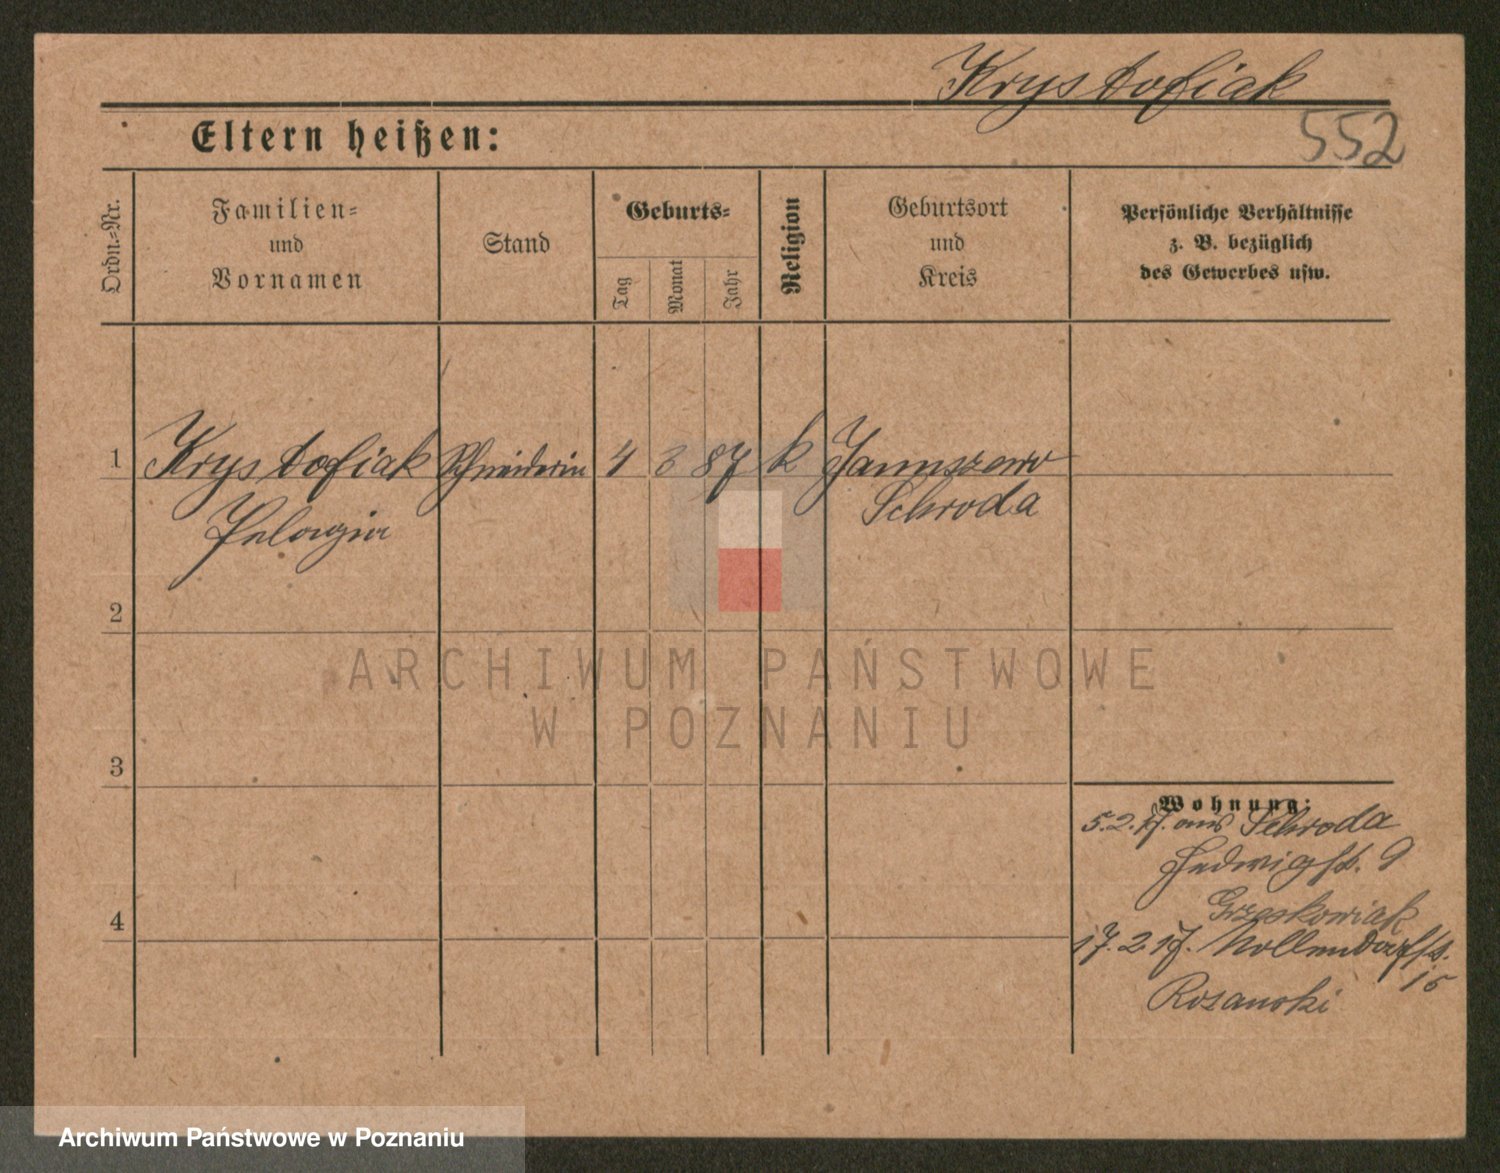 Krystofiak
552
Eltern heißen:
Ordn.-Nr.
Familien-
und
Vornamen
Stand
Geburts-
Tag
Monat
Jahr
Religion
Geburtsort
und
Kreis
Persönliche Verhältnisse
z. B. bezüglich
des Gewerbes usw.
1 Krystofiak Schneiderin 4 3 87 k Januszewo
Pelagia Schroda
2
3
4
Wohnung:
5.2.17. aus Schroda
Hedwigst. 9
Grzeskowiak
17.2.17. Nollendorfst.
15
Rosanski
ARCHIWUM PAŃSTWOWE
W POZNANIU
Archiwum Państwowe w Poznaniu